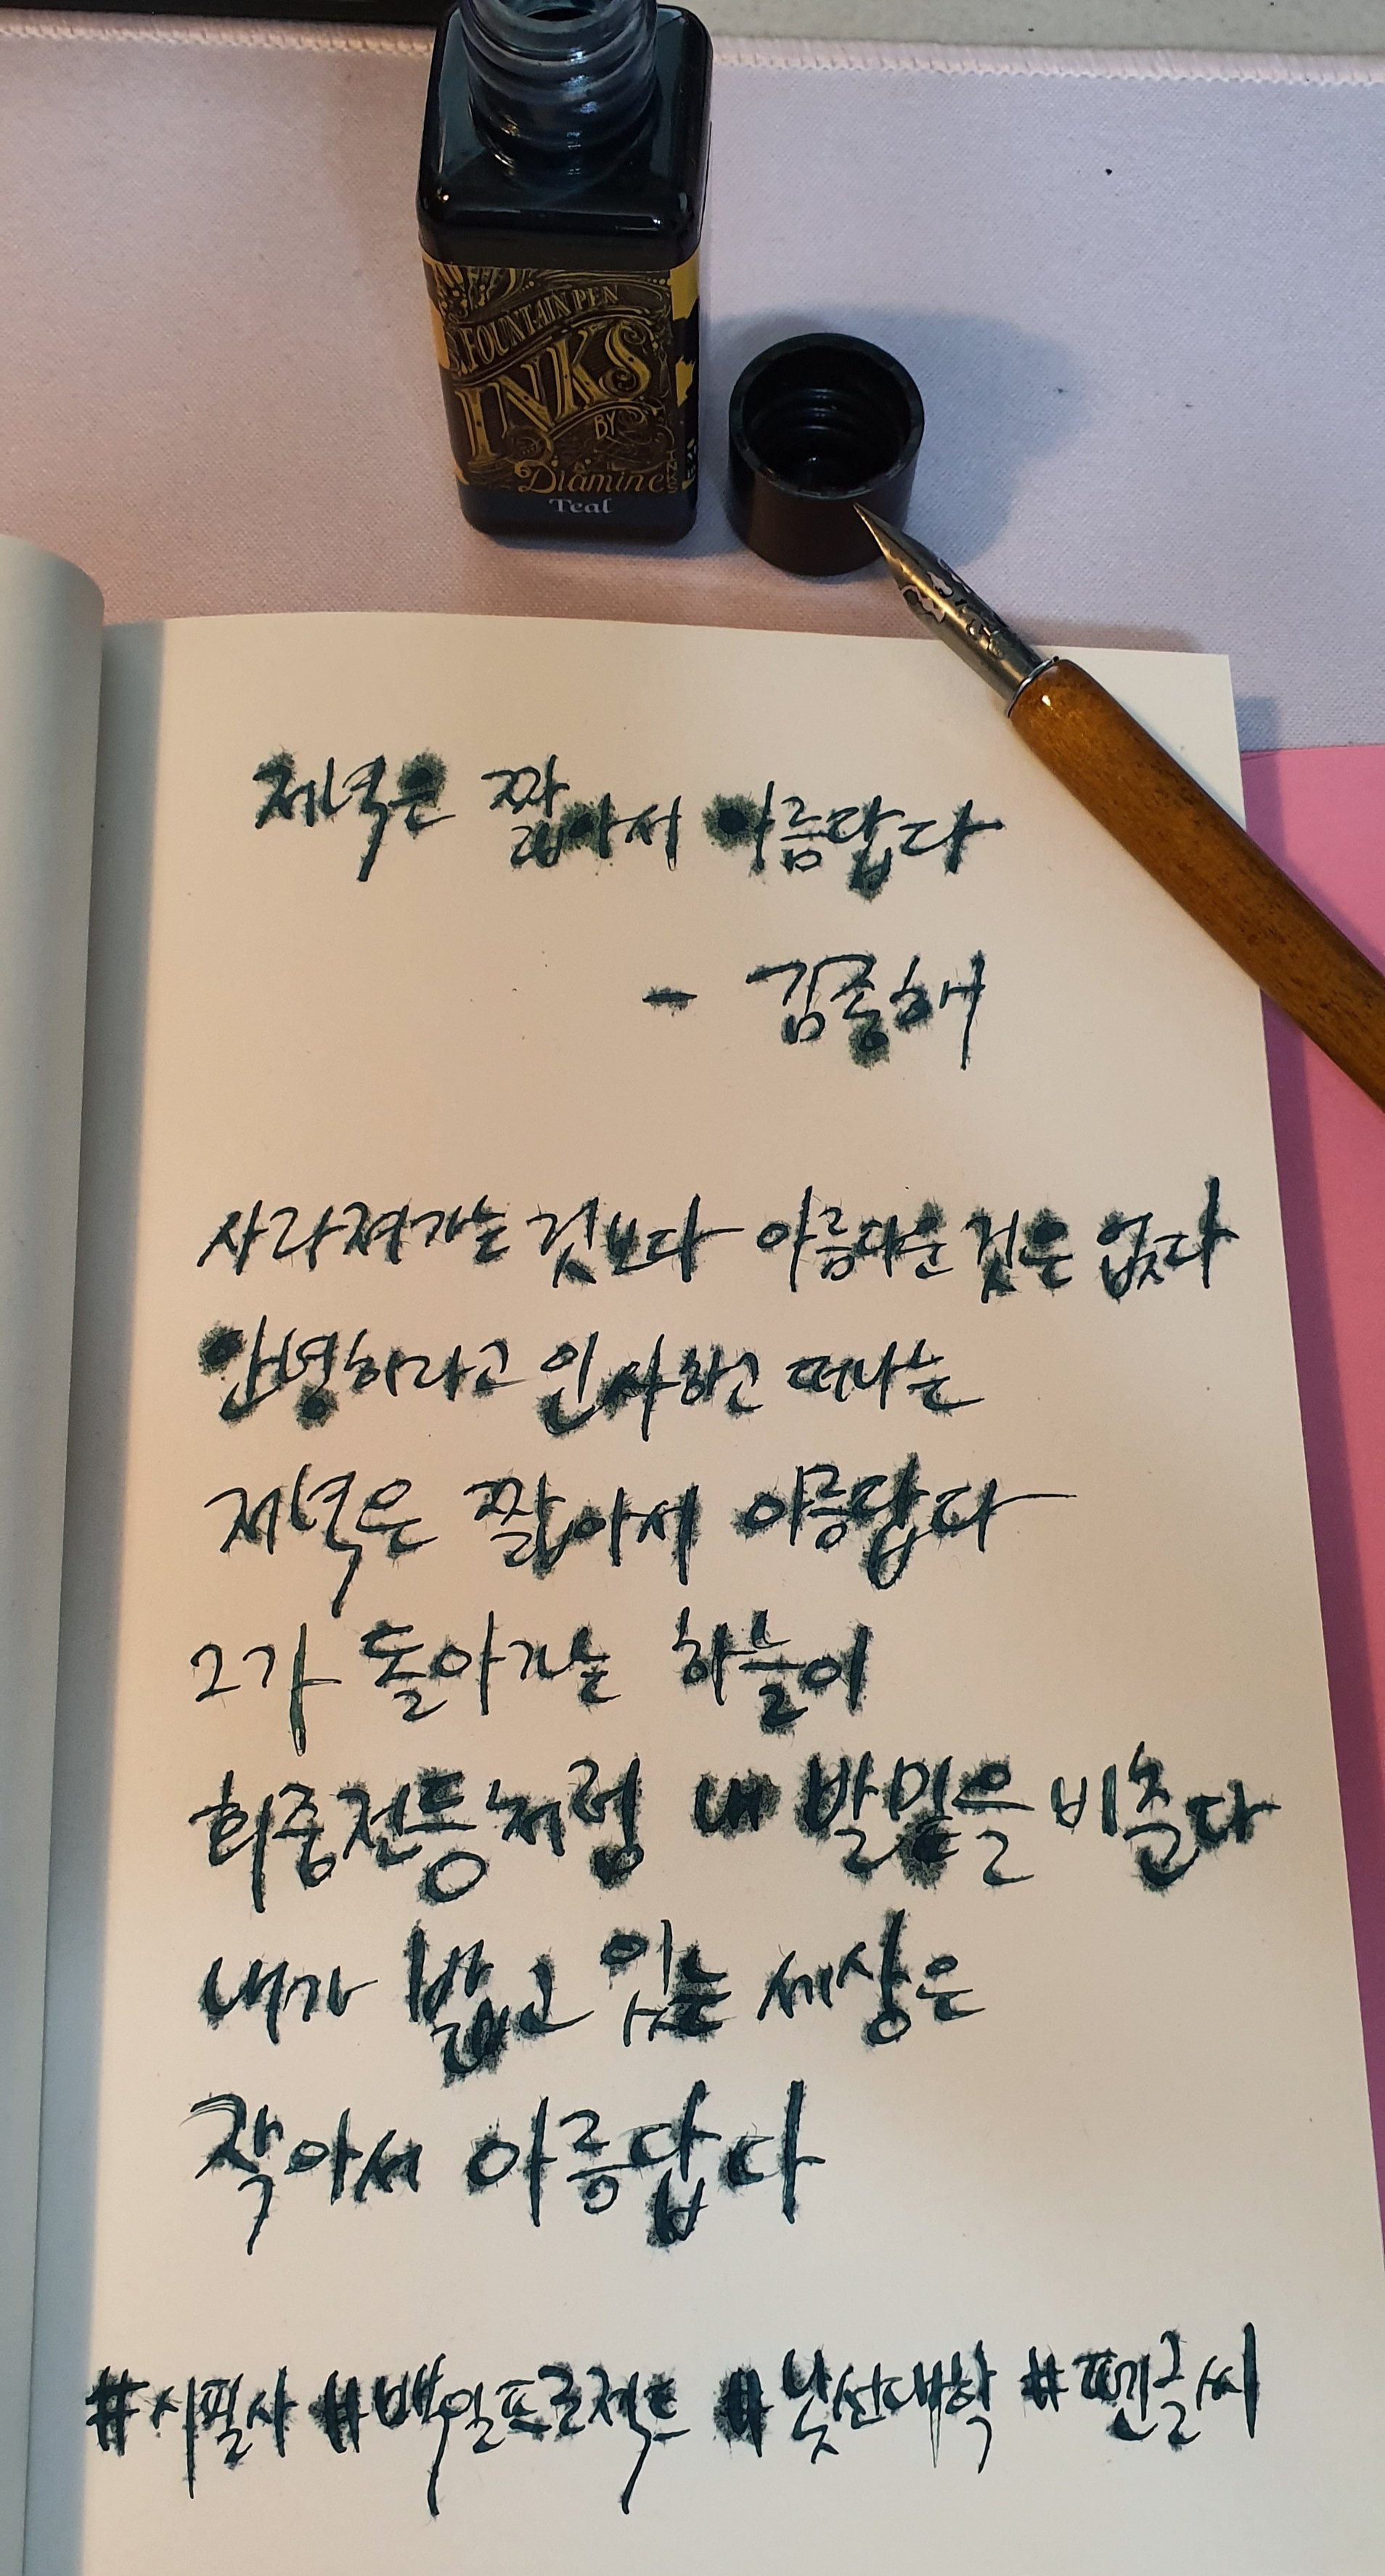 FOUNTAIN PEN
INKS
BY
Diamine
Teal
저녁은 짧아서 아름답다
- 김종해
사라져가는 것보다 아름다운 것은 없다
안녕하라고 인사하고 떠나는
저녁은 짧아서 아름답다
그가 돌아가는 하늘이
회중전등처럼 내 발밑을 비춘다
내가 밟고 있는 세상은
작아서 아름답다
#시필사 #백일프로젝트 #낯선대학 #펜글씨